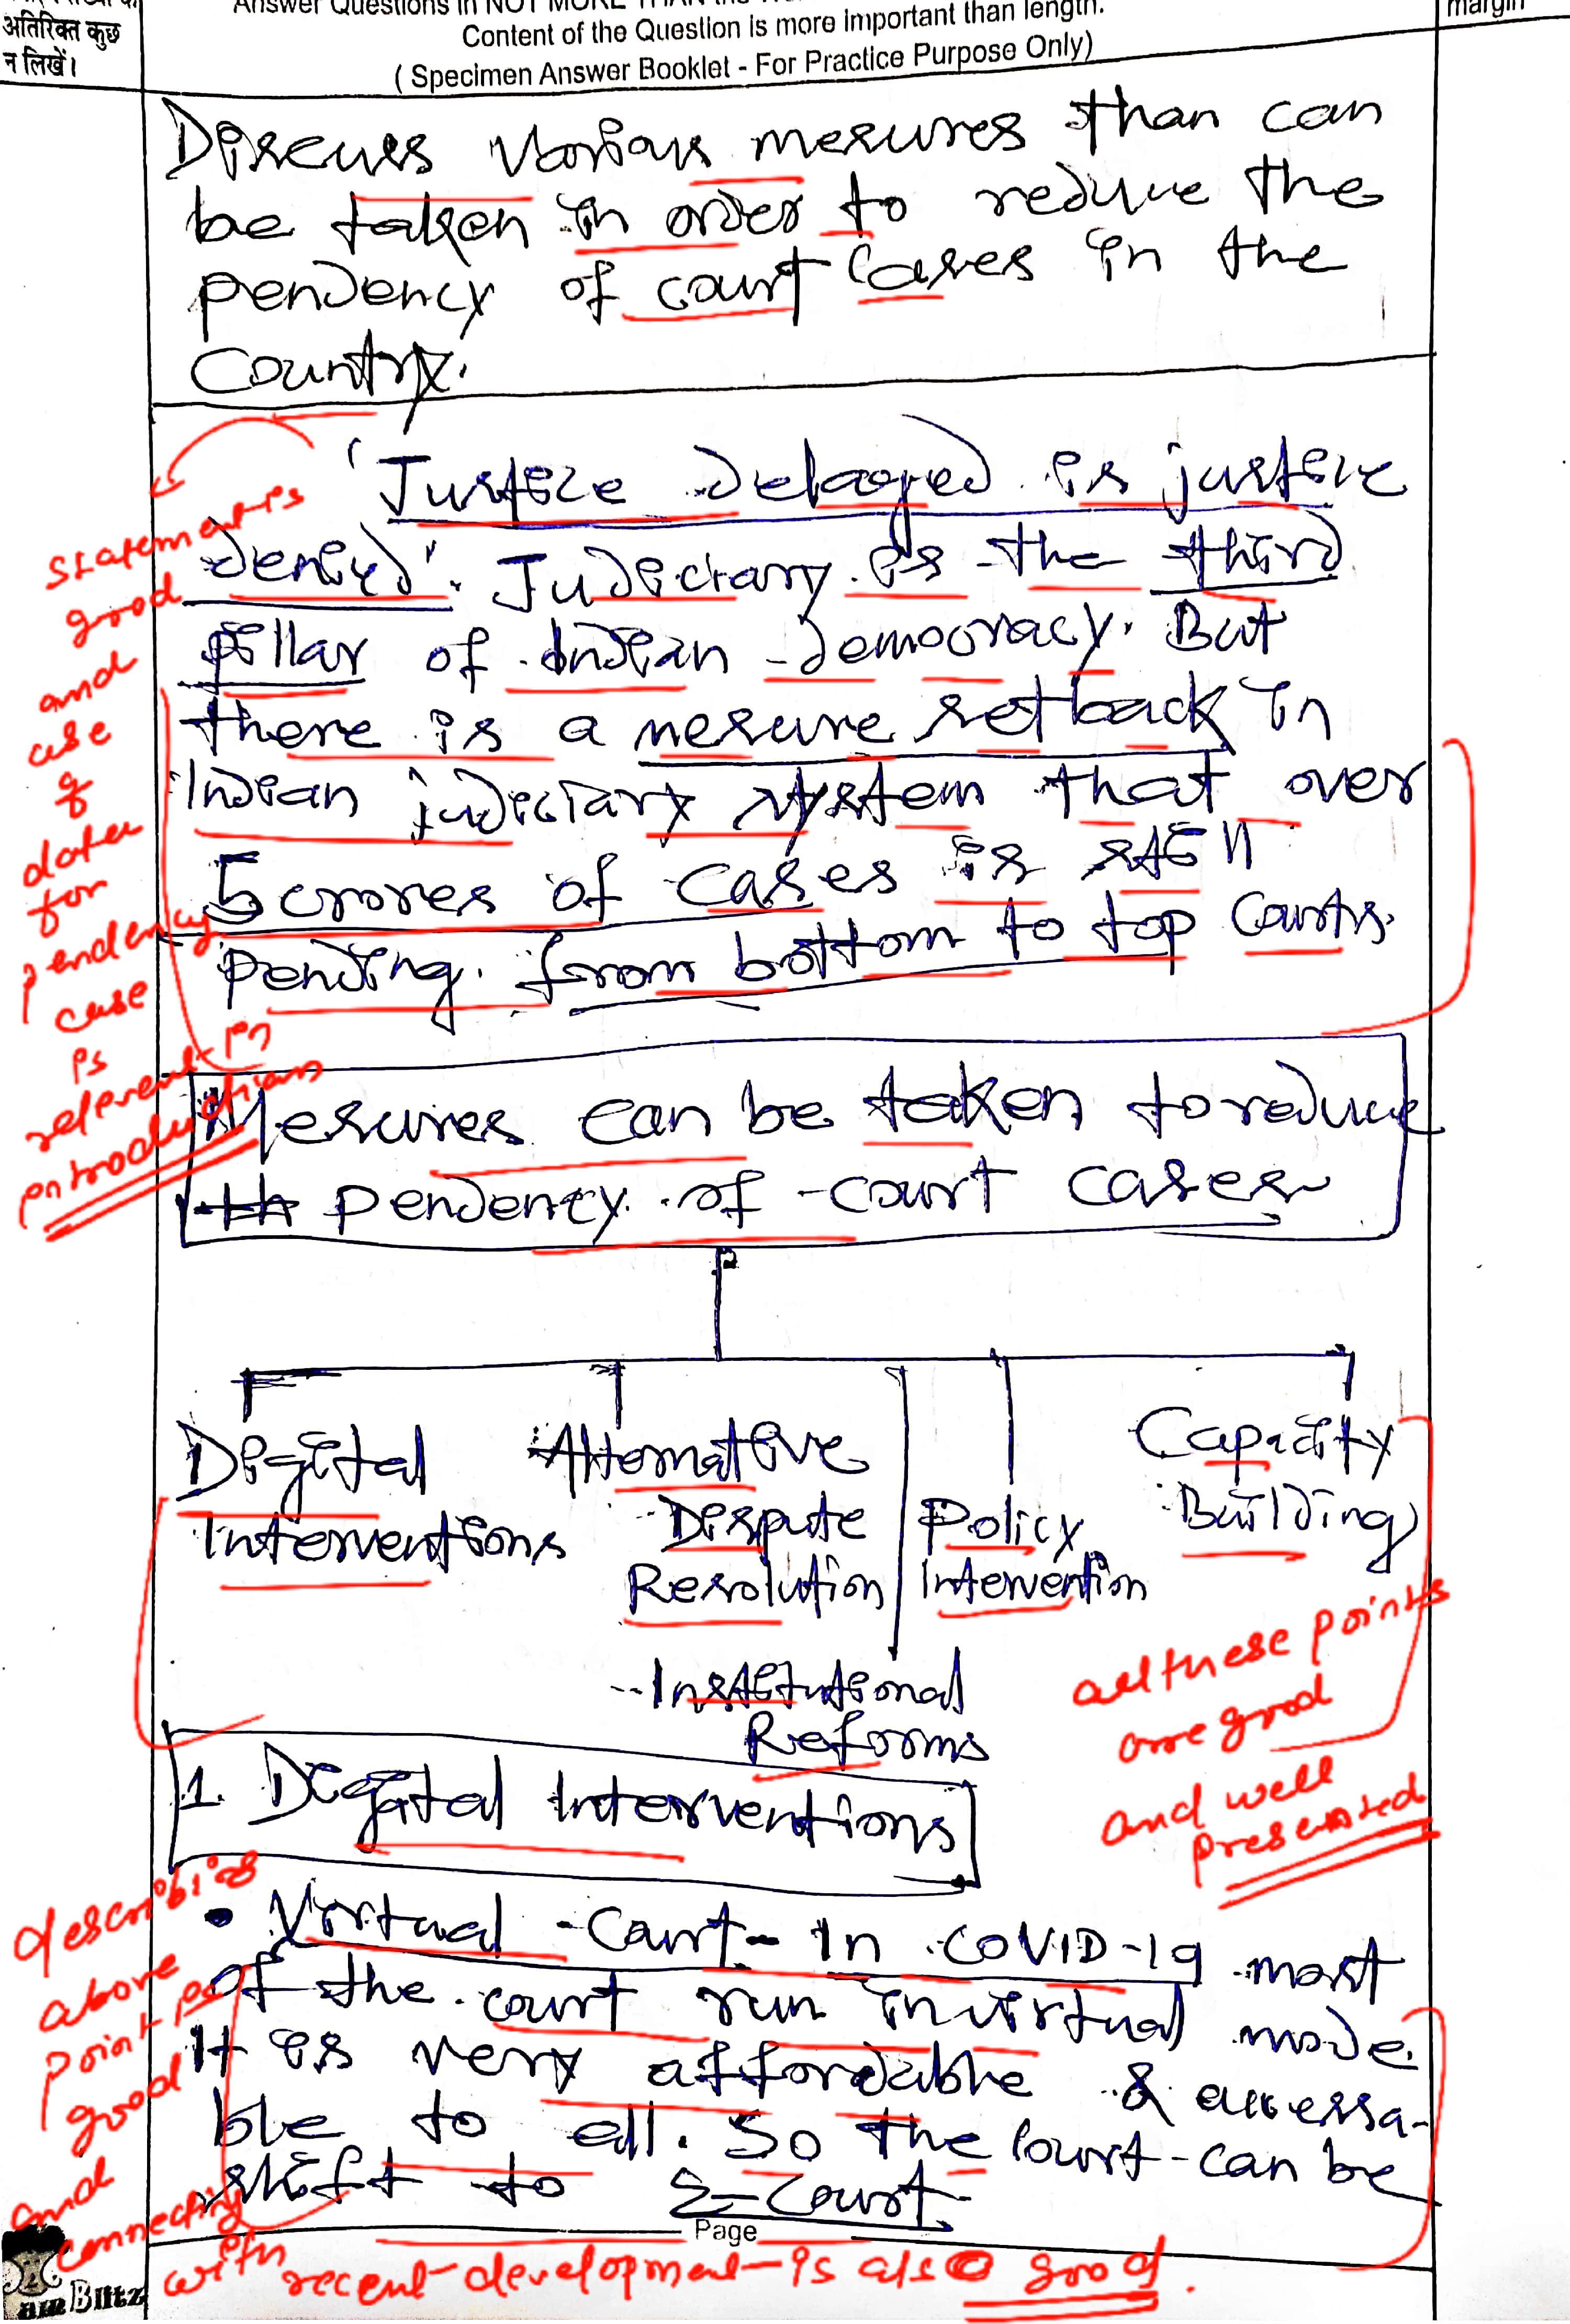 अतिरिक्त कुछ
न लिखें।
Answer Questions in NOT MORE THAN the
Content of the Question is more important than length.
( Specimen Answer Booklet - For Practice Purpose Only)
margin
Discuss various mesures than can
be taken in order to reduce the
pendency of court cases in the
Country.
'Justice Delayed is justice
denied'. Judiciary is the third
pillar of Indian democracy. But
there is a mesure setback in
Indian judiciary system that over
5 crores of cases is still
pending. from bottom to top Courts.
statement is
good
and
use
of
data
for
pendency
case
is
relevent in
introduction
Mesures can be taken to reduce
th pendency of court cases
Digital
Interventions
Alternative
Dispute
Resolution
Institutional
Reforms
Policy
Intervention
Capacity
Building
all these points
are good
and well
presented
1. Digital Interventions
• Virtual Court - In COVID-19 most
of the court run in virtual mode.
It is very affordable & accessa-
ble to all. So the court can be
shift to E-Court
describing
above
point is
good
and
connecting
with recent development is also good.
Page
Blitz